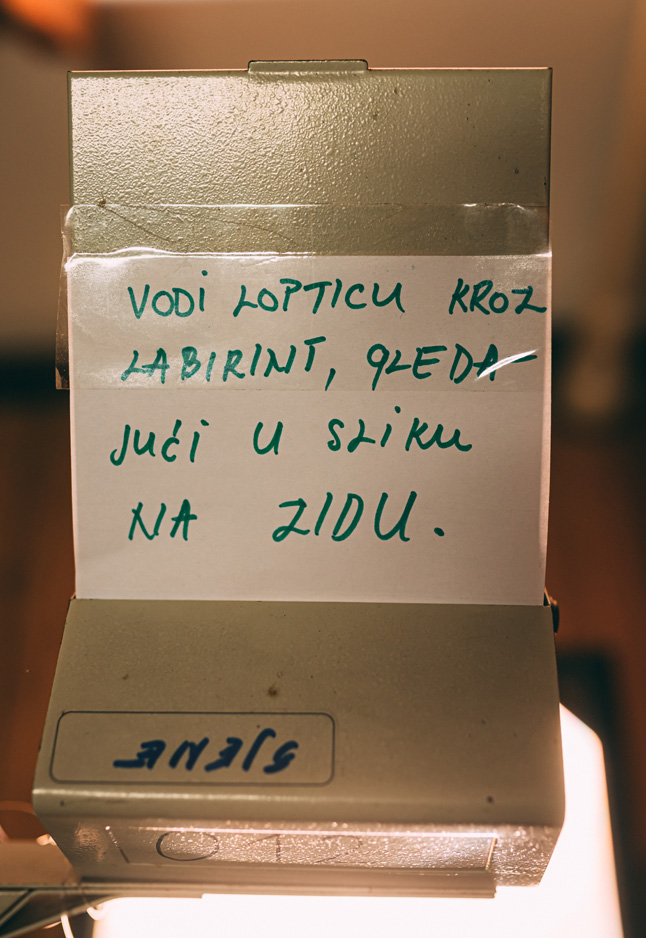 VODI LOPTICU KROZ
LABIRINT, GLEDA-
JUĆI U SLIKU
NA ZIDU.
SJENE